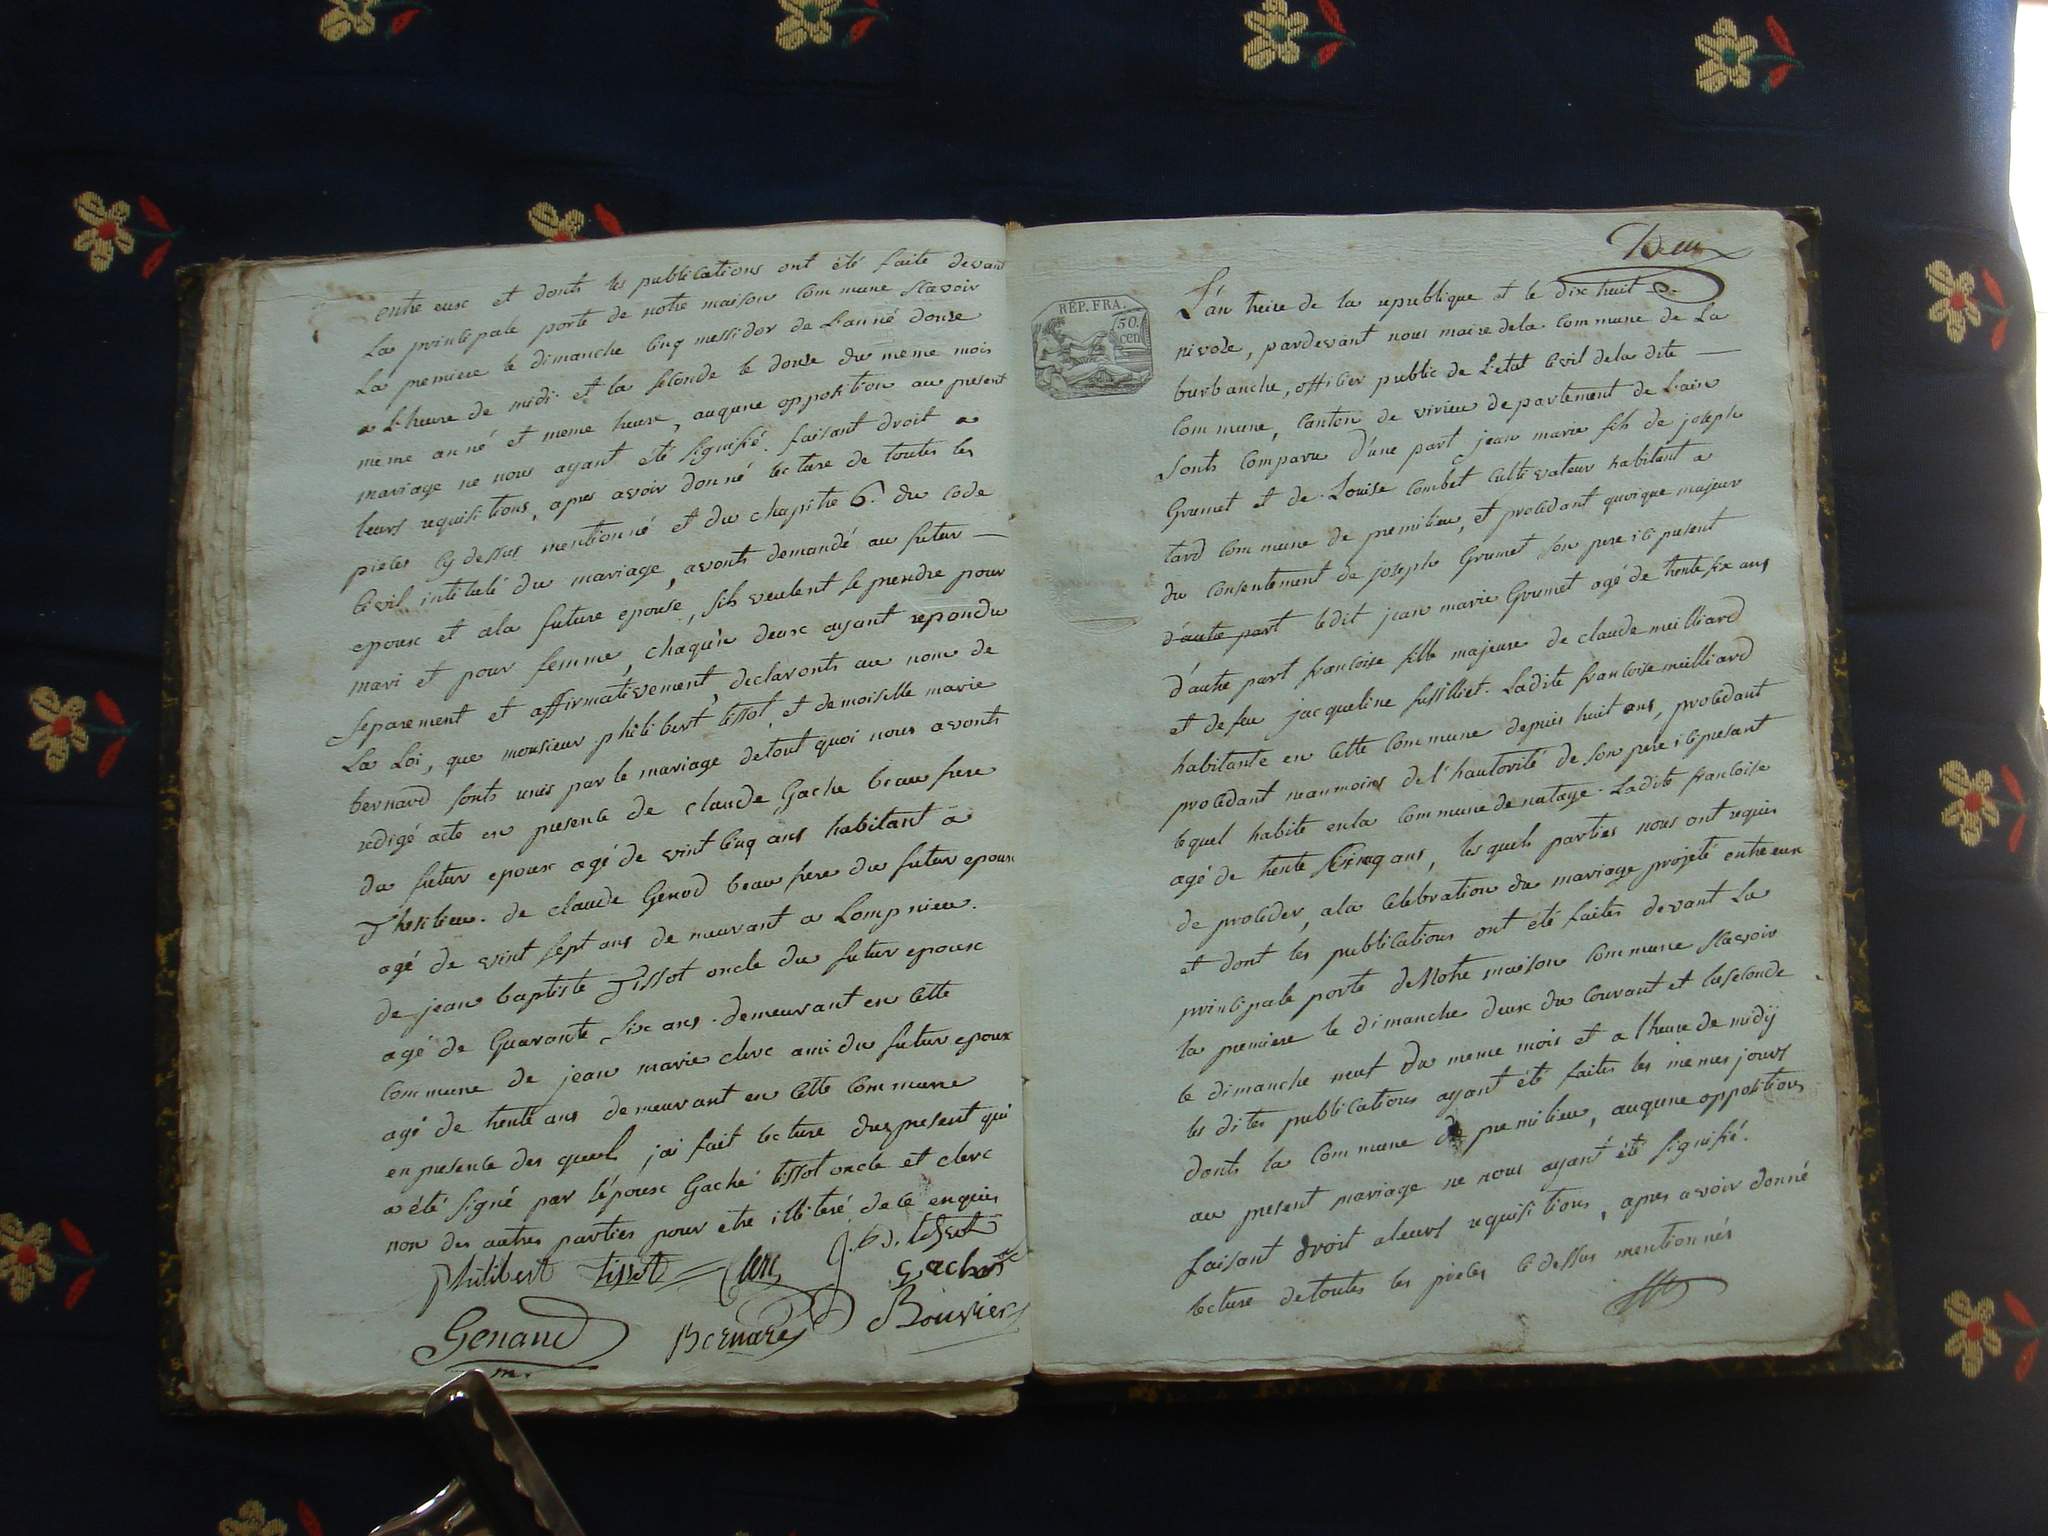 entre eux et donts les publications ont été faite devant
La printipale porte de notre maison Commune scavoir
La premiere le dimanche cinq messidor de L'anné douse
a L'heure de midi et la seconde le douse du meme mois
meme anné et meme heure, auqune opposition au present
mariage ne nous ayant été signifié. faisant droit a
leurs requisitions, apres avoir donné lecture de toutes les
pieces cy dessus mentionné et du chapitre 6. du code
Civil intitulé du mariage, avonts demandé au futur —
epoux et ala future epouse, sils veulent se prendre pour
mari et pour femme, chaqun deux ayant repondu
separement et affirmativement, declaronts au nom de
La Loi, que monsieur philibert tissot, et demoiselle marie
bernard sonts unis par le mariage detout quoi nous avonts
redigé acte en presence de claude Gache beau frere
du futur epoux agé de vint Cinq ans habitant a
Thesilieu. de claude Genod beau frere du futur epoux
agé de vint sept ans demeurant a Lompnieu.
de jean baptiste Tissot oncle du futur epoux
agé de Quarante six ans. demeurant en Cette
Commune de jean marie clerc ami du futur epoux
agé de trente ans demeurant en Cette Commune
en presence des quels jai fait lecture du present qui
a été signé par l'époux Gaché tissot oncle et clerc
non des autres parties pour etre illiteré de ce enquis
Philibert tissot Clerc J.B. tissot
Gache
Genaud Bernard Bouvier
m.
Deux
REP. FRA.
50.
cen
L'an treize de la republique et le dix huit
nivose, pardevant nous maire dela Commune de La
burbanche, officier public de L'etat Civil dela dite —
Commune, Canton de virieu departement de L'ain
Sonts Comparu d'une part jean marie fils de joseph
Grumet et de Louise Combet Cultivateur habitant a
tard Commune de premilieu, et procedant quoique majeur
du Consentement de joseph Grumet son pere ici present
d'autre part ledit jean marie Grumet agé de trente six ans
d'autre part francoise fille majeure de claude meilliard
et de feu jacqueline fusilliet. Ladite francoise meilliard
habitante en Cette Commune depuis huit ans, procedant
procedant neanmoins de l'hautorité de son pere ici present
lequel habite en la Commune de natage. Ladite francoise
agé de trente Cinq ans, les quels parties nous ont requis
de proceder, ala Celebration du mariage projeté entre eux
et dont les publications ont été faites devant La
printipale porte de Notre maison Commune scavoir
la premiere le dimanche deux du Courant et la seconde
le dimanche neuf du meme mois et a l'heure de midij
les dites publications ayant été faites les memes jours
donts la Commune de premilieu, auqune oppositions
au present mariage ne nous ayant été signifié.
faisant droit aleurs requisitions, apres avoir donné
lecture detoutes les pieces ci dessus mentionnés